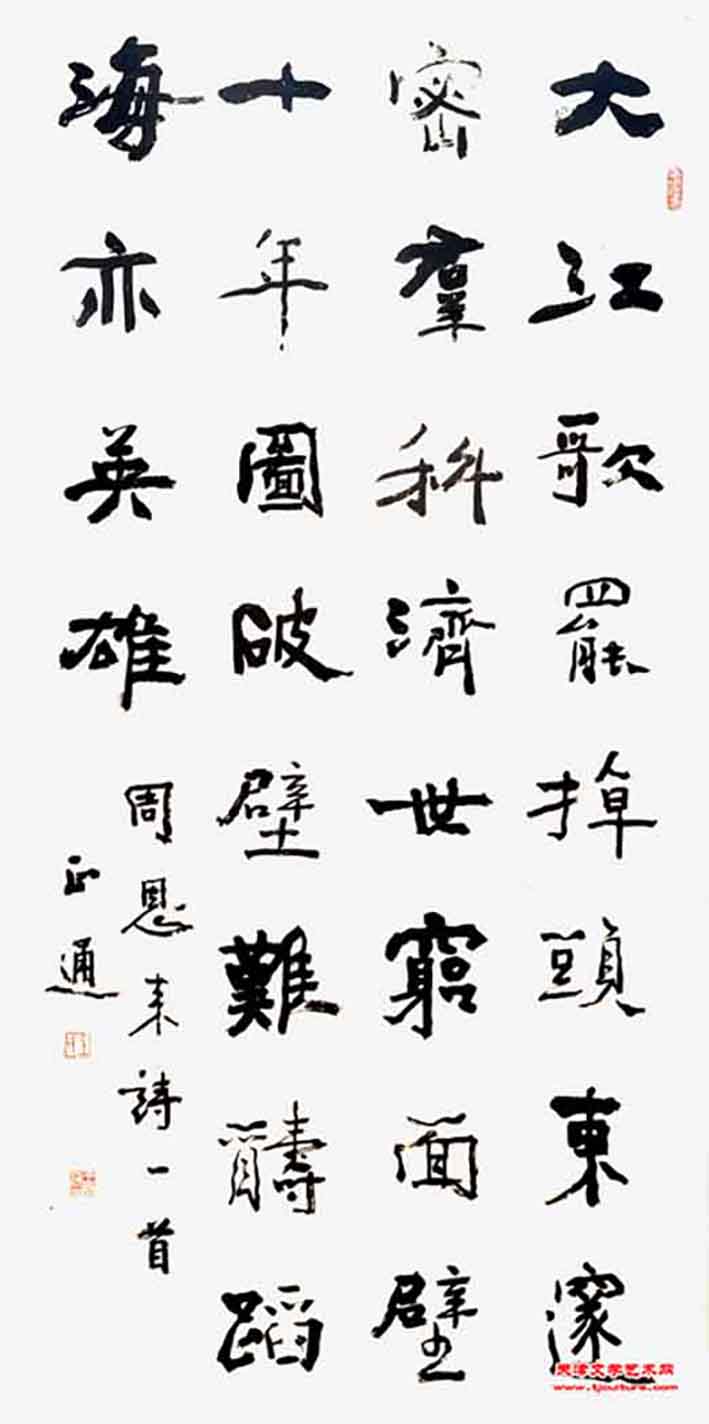 大江歌罷掉頭東邃
密羣科濟世窮面壁
十年圖破壁難醻蹈
海亦英雄
周恩来詩一首
正通
天津文学艺术网